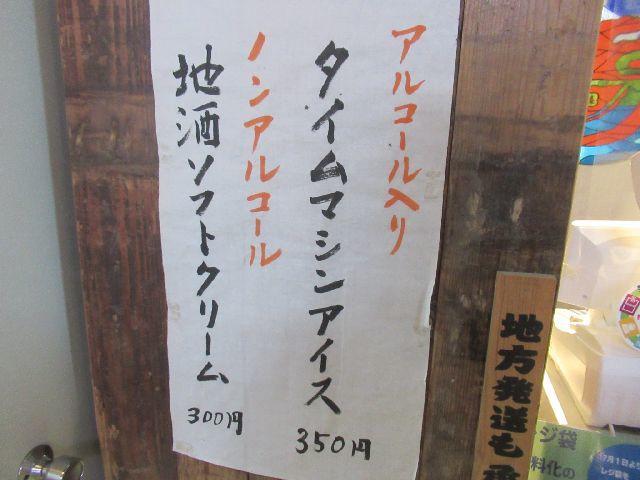 アルコール入り
タイムマシンアイス
350円
ノンアルコール
地酒ソフトクリーム
300円
地方発送も承
ジ袋
料化の
7月1日よ
レジ袋を